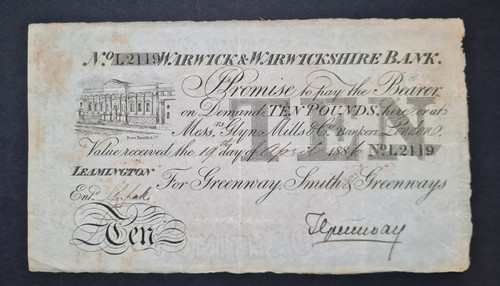 No. L2119 WARWICK & WARWICKSHIRE BANK.
I Promise to pay the Bearer
on Demand, TEN POUNDS, here or at
Messrs. Glyn, Mills & Co. Bankers, London,
Value received the 19th day of April 1886 No. L2119
LEAMINGTON For Greenway, Smith & Greenways
Entd.
Ten
TEN
Greenway